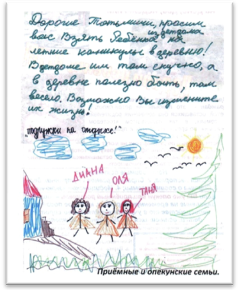 Дорогие Татьмиши, просим
вас взять ребенка из детдома на
летние каникулы в деревню!
В детдоме им там скучно, а
в деревне полезно быть, там
весело. Возможно Вы измените
их жизнь!
"подружки на отдыхе!"
ДИАНА
ОЛЯ
ТАНЯ
Приёмные и опекунские семьи.